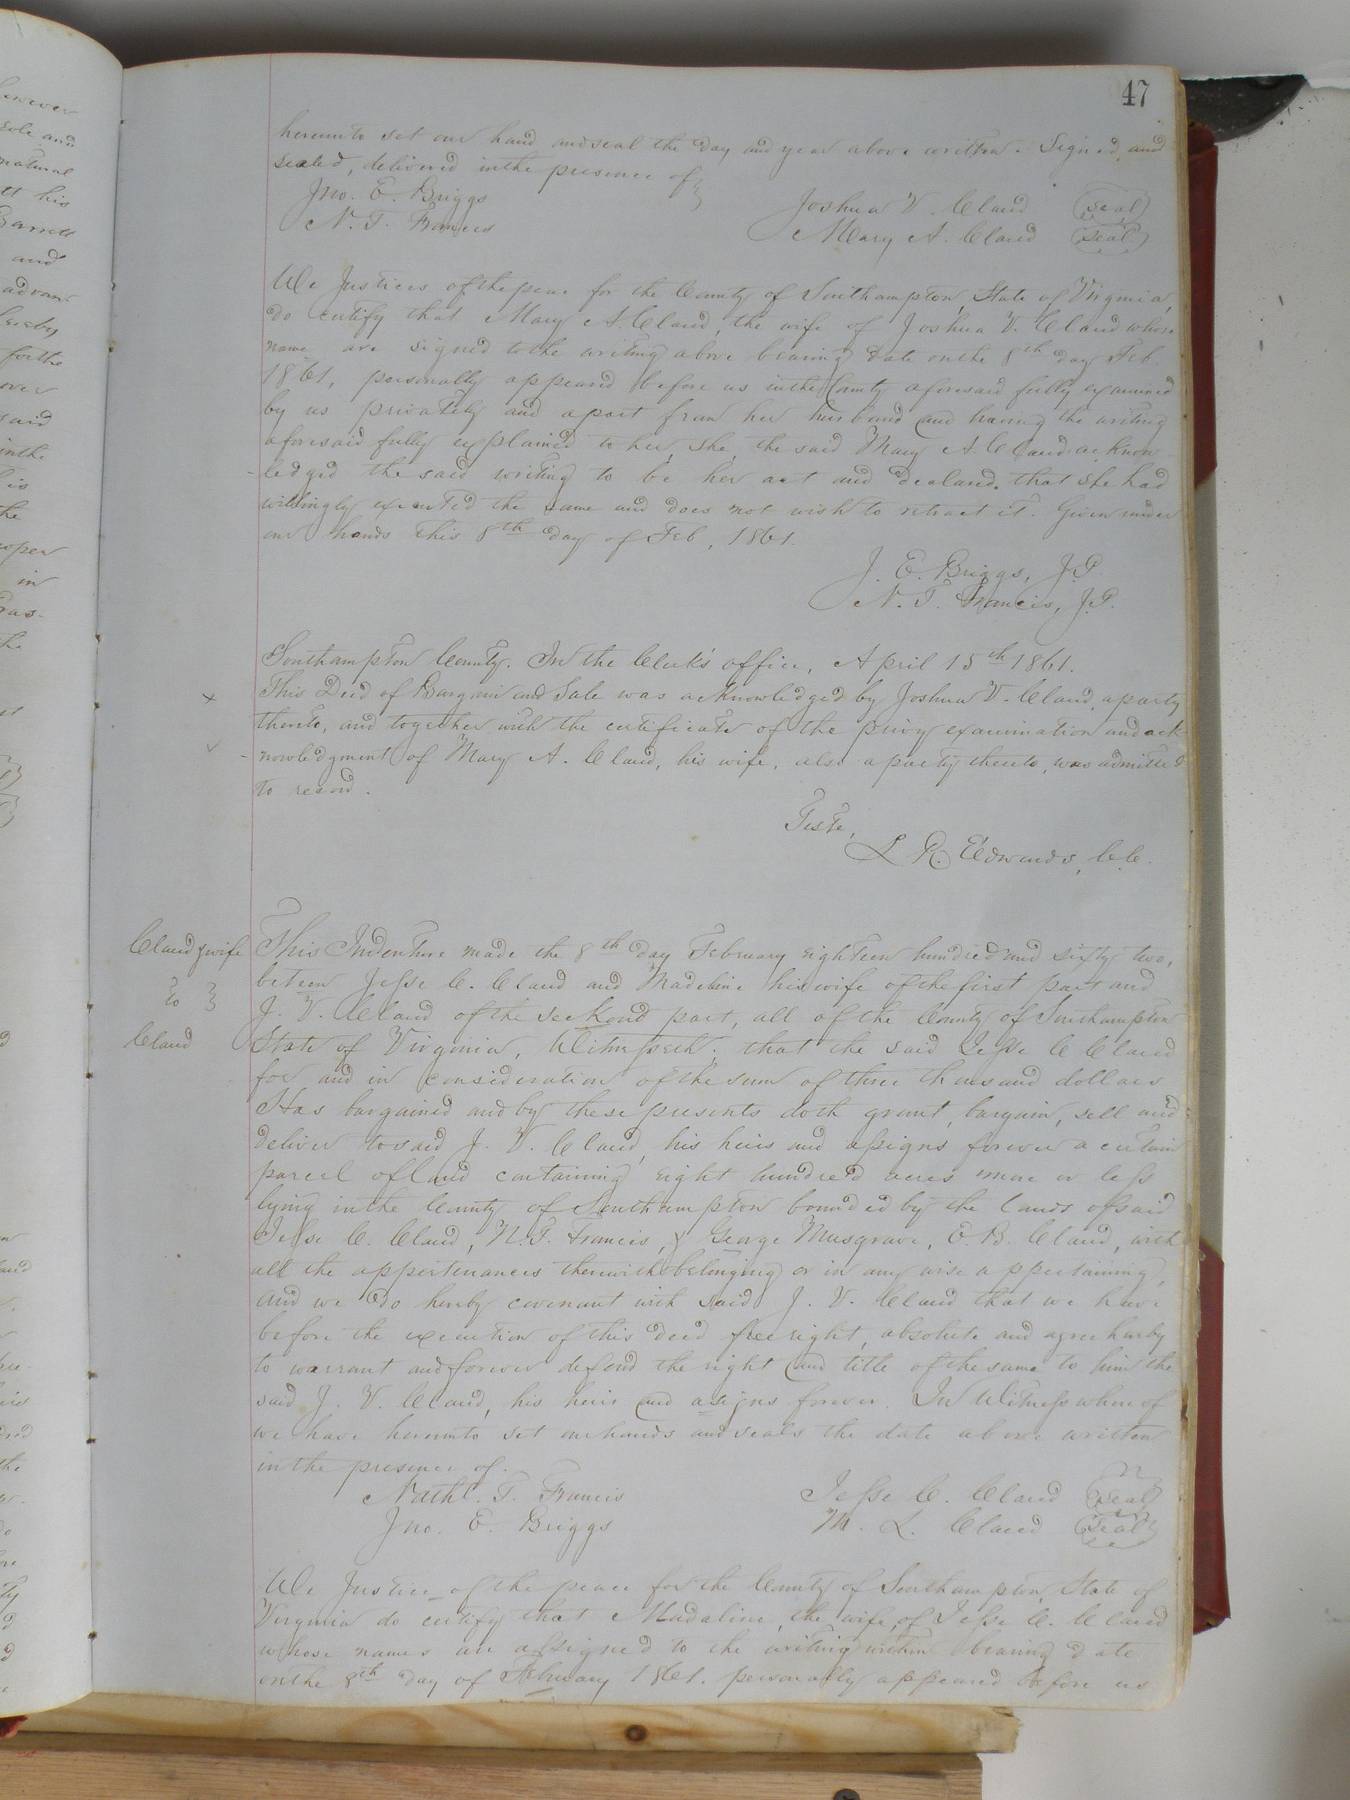 47
hereunto set our hand and seal the day and year above written. Signed, and
sealed, delivered in the presence of
Jno. E. Briggs
Joshua V. Claud (seal)
N. T. Francis
Mary A. Claud (seal)
We Justices of the peace for the County of Southampton, State of Virginia,
do certify that Mary A. Claud, the wife of Joshua V. Claud whose
name are signed to the writing above bearing date on the 8th day Feb.
1861, personally appeard before us in the County aforesaid fully examined
by us privately and apart from her husband and having the writing
aforesaid fully explained to her, she, the said Mary A. Claud acknow-
-ledged the said writing to be her act and declared that she had
willingly executed the same and does not wish to retract it. Given under
our hands this 8th day of Feb, 1861.
J. E. Briggs, J.P.
N. T. Francis, J.P.
Southampton County. In the Clerk's office, April 15th 1861.
This Deed of Bargain and Sale was acknowledged by Joshua V. Claud, a party
thereto, and together with the certificate of the privy examination and ack-
-nowledgment of Mary A. Claud, his wife, also a party thereto, was admitted
to record.
Teste,
L R. Edwards, C.C.
Claud & wife
to
Claud
This Indenture made the 8th day February eighteen hundred and sixty two,
beteen Jesse C. Claud and Madeline his wife of the first part and
J. V. Claud of the seckond part, all of the County of Southampton
State of Virginia, Witnesseth; that the said Jesse C Claud
for and in consideration of the sum of three thousand dollars
Has bargained and by these presents doth grant, bargain, sell and
deliver to said J. V. Claud, his heirs and asigns forever a certain
parcel of land containing eight hundred acres more or less
lying in the County of Southampton bounded by the lands of said
Jesse C. Claud, N. T. Francis, & George Musgrave, E. B. Claud, with
all the appertenances therewith belonging or in any wise appertaining,
and we do hereby covenant with said J. V. Claud that we have
before the execution of this deed free right, absolute and agree hereby
to warrant and forever defend the right and title of the same to him the
said J. V. Claud, his heirs and asigns forever. In Witness where of
we have hereunto set our hands and seals the date above written
in the presence of.
Nathl. T. Francis
Jesse C. Claud (seal)
Jno. E. Briggs
M. L. Claud (seal)
We Justice of the peace for the County of Southampton, State of
Virginia do certify that Madaline, the wife, of Jesse C. Claud
whose names are assigned to the writing within bearing date
on the 8th day of February 1861. personally appeared before us